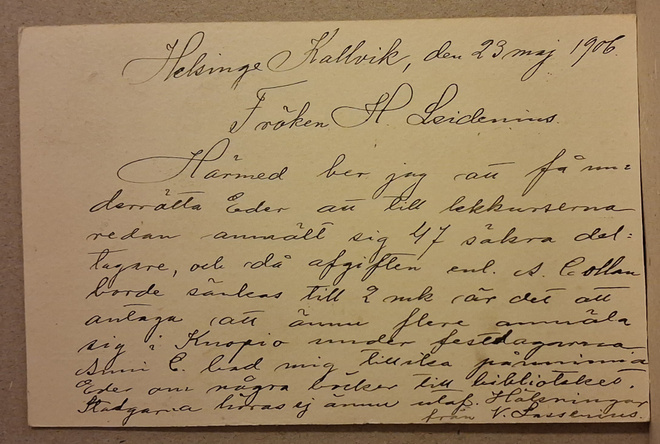 Helsinge Kallvik, den 23 maj 1906
Fröken H.
Härmed ber jag att få un=
derrätta Eder att till lekkurserna
redan anmält sig 47 säkra del=
tagare, och då afgiften enl. A. Collan
borde sänkas till 2 mk är det att
antaga att ännu flere anmäla
sig i Knopio under festdagarna
Anni C. bad mig tillika påminna
Eder om några böcker till biblioteket.
Stadgarna höras ej ännu utaf. Hälsningar
från V. Lassenius.